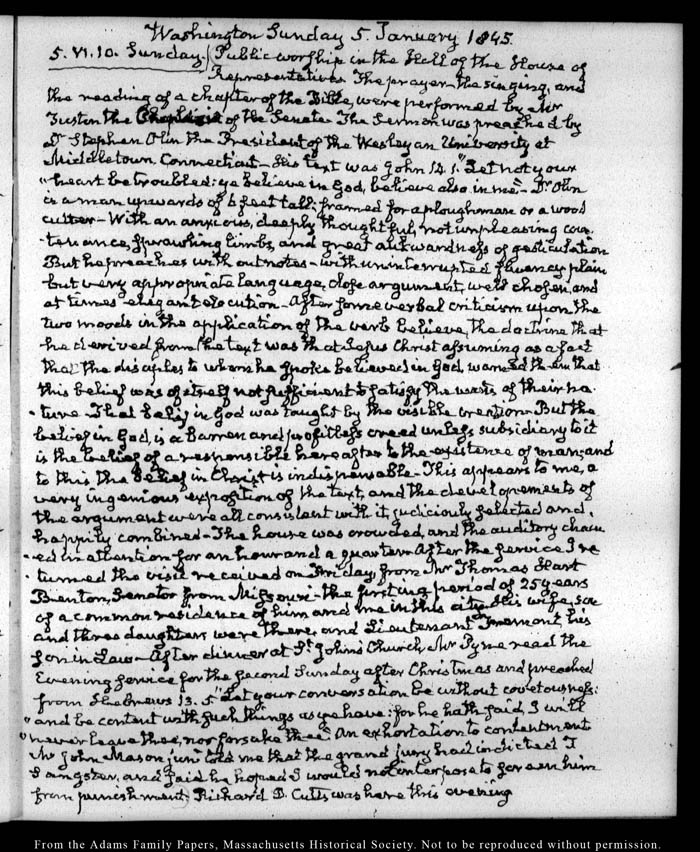 Washington Sunday 5. January 1845.
5. VI. 10. Sunday. Public worship in the Hall of the House of
Representatives. The prayer, the singing, and
the reading of a chapter of the Bible, were performed by Mr
Tustin the Chaplain of the Senate. The Sermon was preached by
Dr Stephen Olin the President of the Wesleyan University at
Middletown Connecticut - His text was John 14. 1. "Let not your
"heart be troubled: ye believe in God, believe also in me" - Dr Olin
is a man upwards of 6 feet tall; framed for a ploughman or a wood
cutter - With an anxious, deeply thoughtful, not unpleasing coun-
-tenance, sprawling limbs, and great aukwardness of gesticulation
But he preaches without notes - with uninterrupted fluency plain
but very appropriate language, close argument, well chosen, and
at times elegant elocution - After some verbal criticism upon the
two moods in the application of the verb believe, the doctrine that
he derived from the text was that Jesus Christ assuming as a fact
that the disciples to whom he spoke believed in God, warned them that
this belief was of itself not sufficient to satisfy the wants of their na-
-ture - That belief in God was taught by the visible creation - But the
belief in God, is a barren and profitless creed unless subsidiary to it
is the belief of a responsible hereafter to the existence of man; and
to this, the belief in Christ is indispensable - This appears to me, a
very ingenious exposition of the text, and the developements of
the argument were all consistent with it, judiciously selected and
happily combined - The house was crowded, and the auditory chain
-ed in attention for an hour and a quarter - After the service I re
-turned the visit received on Friday, from Mr Thomas Hart
Benton, Senator from Missouri - the first in a period of 25 years
of a common residence of him and me in this city - His wife, son
and three daughters were there, and Lieutenant Fremont his
son in Law - After dinner at St. John's Church Mr Pyne read the
Evening service for the second Sunday after Christmas and preached
from Hebrews 13. 5 "Let your conversation be without covetousness:
"and be content with such things as ye have: for he hath said, I will
"never leave thee, nor forsake thee." An exhortation to contentment
Mr John Mason junr. told me that the grand jury had indicted
Sangster, and said he hoped I would not interpose to screen him
from punishment - Richard D. Cutts was here this evening
From the Adams Family Papers, Massachusetts Historical Society. Not to be reproduced without permission.